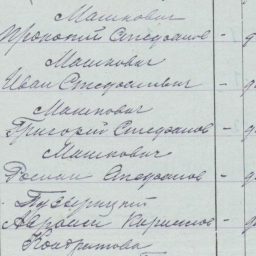 Машкович
Прокопий Стефанов -
Машкович
Иван Стефанович -
Машкович
Григорий Стефанов -
Машкович
Роман Стефанов -
Авраам Кириллов -
Кондратова